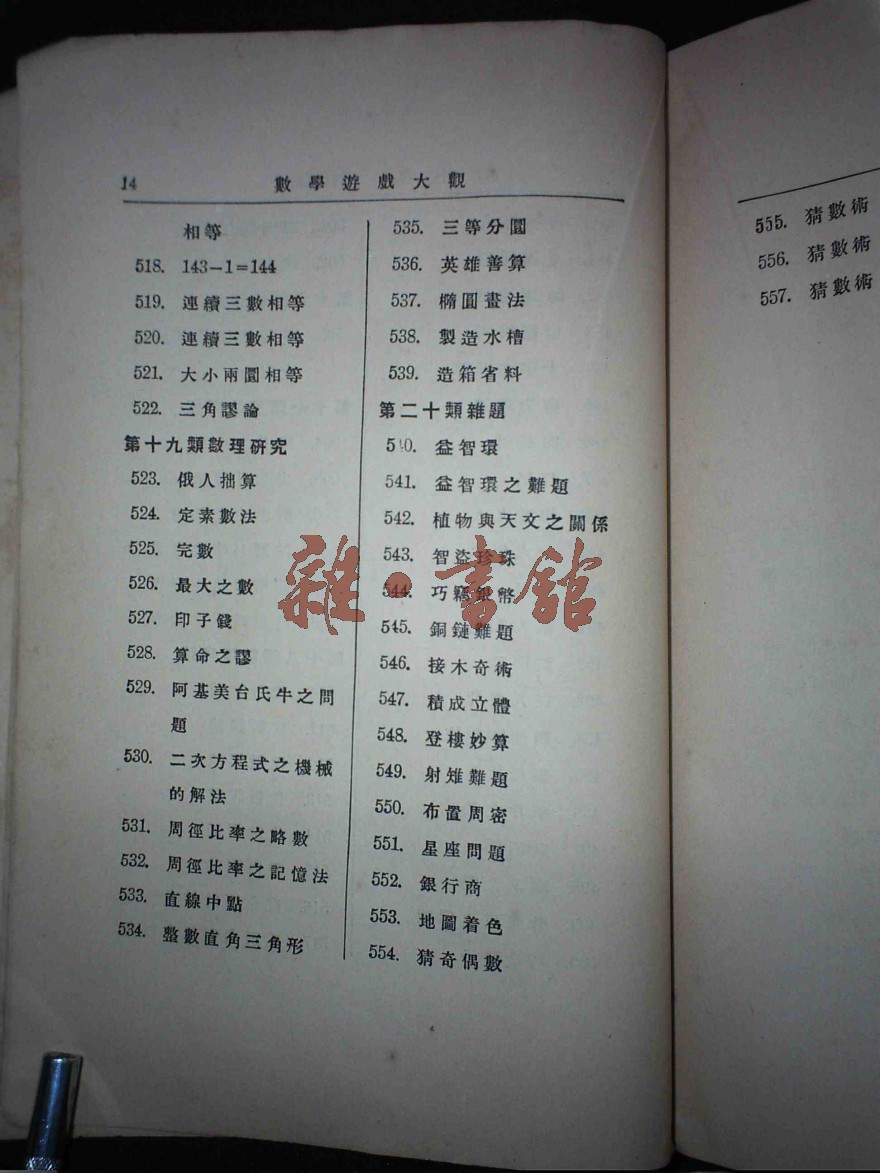 14
數學遊戲大觀
相等
518. 143-1=144
519. 連續三數相等
520. 連續三數相等
521. 大小兩圓相等
522. 三角謬論
第十九類數理研究
523. 俄人拙算
524. 定素數法
525. 完數
526. 最大之數
527. 印子錢
528. 算命之謬
529. 阿基美台氏牛之問
題
530. 二次方程式之機械
的解法
531. 周徑比率之略數
532. 周徑比率之記憶法
533. 直線中點
534. 整數直角三角形
535. 三等分圓
536. 英雄善算
537. 橢圓畫法
538. 製造水槽
539. 造箱省料
第二十類雜題
540. 益智環
541. 益智環之難題
542. 植物與天文之關係
543. 智盜珍珠
544. 巧竊銀幣
545. 銅鏈難題
546. 接木奇術
547. 積成立體
548. 登樓妙算
549. 射雉難題
550. 布置周密
551. 星座問題
552. 銀行商
553. 地圖着色
554. 猜奇偶數
555. 猜數術
556. 猜數術
557. 猜數術
雜·書館